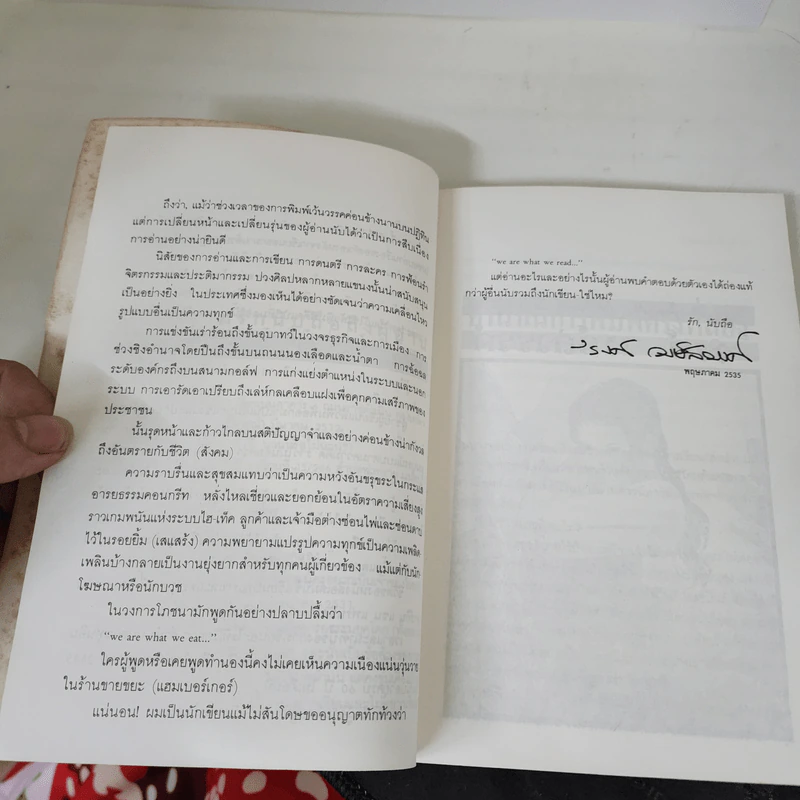 ถึงว่า, แม้ว่าช่วงเวลาของการพิมพ์เว้นวรรคค่อนข้างนานบนปฏิทิน
แต่การเปลี่ยนหน้าและเปลี่ยนรุ่นของผู้อ่านนับได้ว่าเป็นการสืบเนื่อง
การอ่านอย่างน่ายินดี
นิสัยของการอ่านและการเขียน การดนตรี การละคร การฟ้อนรำ
จิตรกรรมและประติมากรรม ปวงศิลปหลากหลายแขนงนั้นน่าสนับสนุน
เป็นอย่างยิ่ง ในประเทศซึ่งมองเห็นได้อย่างชัดเจนว่าความเคลื่อนไหว
รูปแบบอื่นเป็นความทุกข์
การแข่งขันเร่าร้อนถึงขั้นอุบาทว์ในวงจรธุรกิจและการเมือง การ
ช่วงชิงอำนาจโดยปืนถึงขั้นบนถนนนองเลือดและน้ำตา การฉ้อฉล
ระดับองค์กรถึงบนสนามกอล์ฟ การแก่งแย่งตำแหน่งในระบบและนอก
ระบบ การเอารัดเอาเปรียบถึงเล่ห์กลเคลือบแฝงเพื่อคุกคามเสรีภาพของ
ประชาชน
นั้นรุดหน้าและก้าวไกลบนสติปัญญาจำแลงอย่างค่อนข้างน่ากังวล
ถึงอันตรายกับชีวิต (สังคม)
ความราบรื่นและสุขสมแทบว่าเป็นความหวังอันขรุขระในกระแส
อารยธรรมคอนกรีท หลั่งไหลเชี่ยวและยอกย้อนในอัตราความเสี่ยงสูง
ราวเกมพนันแห่งระบบไฮ-เท็ค ลูกค้าและเจ้ามือต่างซ่อนไพ่และซ่อนดาบ
ไว้ในรอยยิ้ม (เสแสร้ง) ความพยายามแปรรูปความทุกข์เป็นความเพลิด
เพลินบ้างกลายเป็นงานยุ่งยากสำหรับทุกคนผู้เกี่ยวข้อง แม้แต่กับนัก
โฆษณาหรือนักบวช
ในวงการโภชนามักพูดกันอย่างปลาบปลื้มว่า
"we are what we eat..."
ใครผู้พูดหรือเคยพูดทำนองนี้คงไม่เคยเห็นความเนืองแน่นวุ่นวาย
ในร้านขายขยะ (แฮมเบอร์เกอร์)
แน่นอน! ผมเป็นนักเขียนแม้ไม่สันโดษขออนุญาตทักท้วงว่า
"we are what we read..."
แต่อ่านอะไรและอย่างไรนั้นผู้อ่านพบคำตอบด้วยตัวเองได้ถ่องแท้
กว่าผู้อื่นนับรวมถึงนักเขียน-ใช่ไหม?
รัก, นับถือ
พฤษภาคม 2535